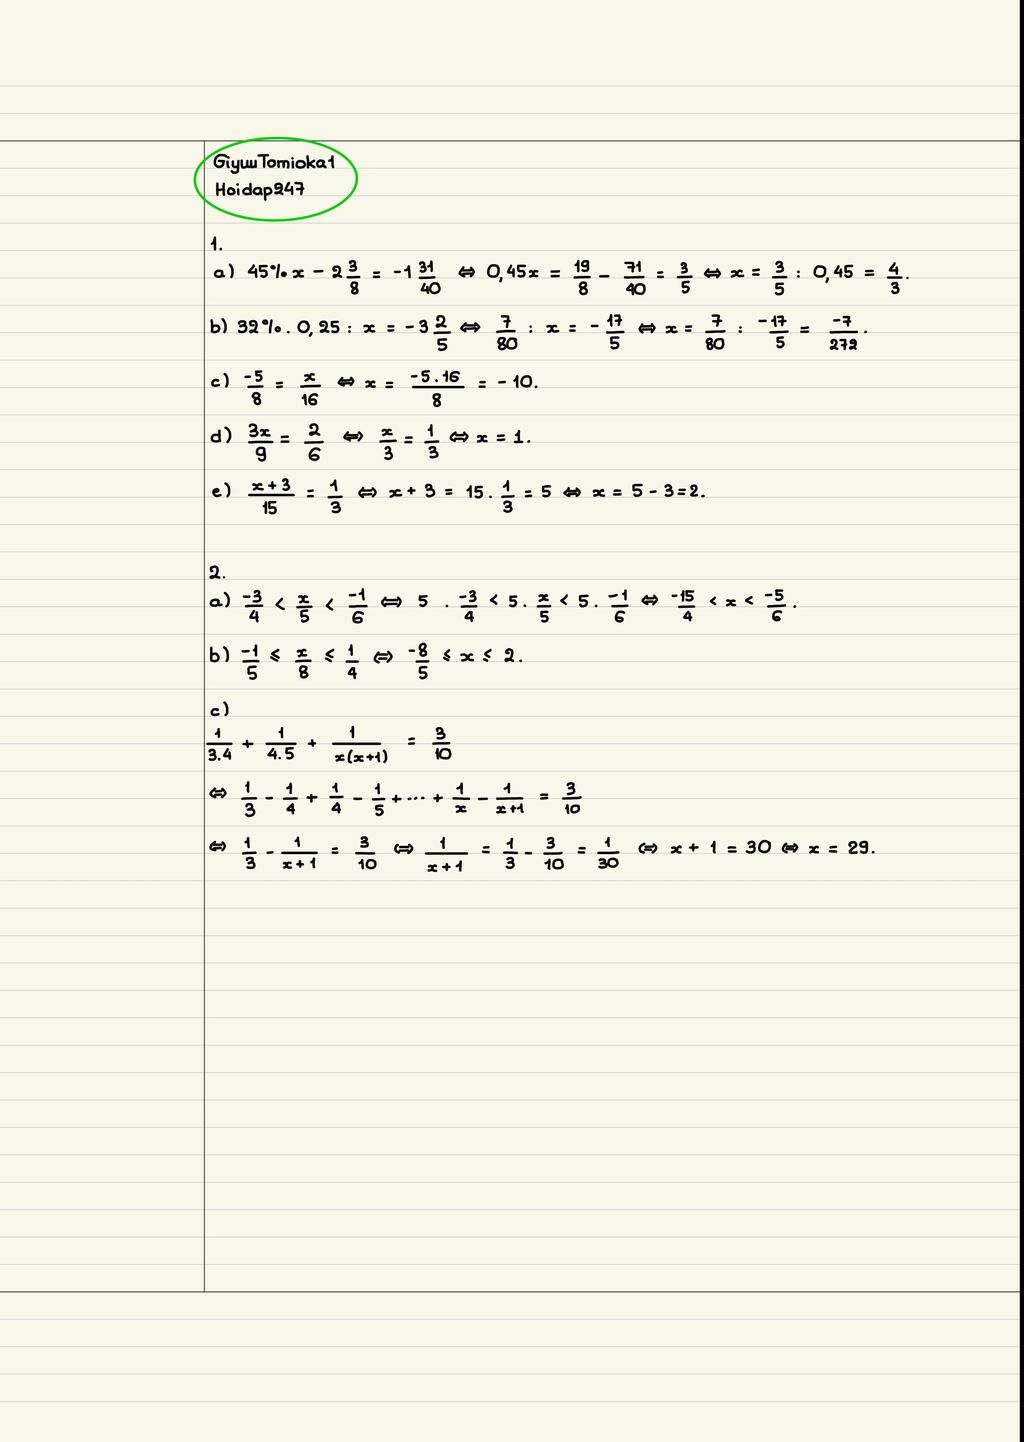 GiyuuTomioka1
Hoidap247
1.
a) 45%x - 2 3/8 = -1 31/40 ⇔ 0,45x = 19/8 - 71/40 = 3/5 ⇔ x = 3/5 : 0,45 = 4/3.
b) 32%. 0,25 : x = -3 2/5 ⇔ 7/80 : x = -17/5 ⇔ x = 7/80 : -17/5 = -7/272.
c) -5/8 = x/16 ⇔ x = -5.16/8 = -10.
d) 3x/9 = 2/6 ⇔ x/3 = 1/3 ⇔ x = 1.
e) x+3/15 = 1/3 ⇔ x + 3 = 15 . 1/3 = 5 ⇔ x = 5 - 3 = 2.
2.
a) -3/4 < x/5 < -1/6 ⇔ 5 . -3/4 < 5 . x/5 < 5 . -1/6 ⇔ -15/4 < x < -5/6.
b) -1/5 ≤ x/8 ≤ 1/4 ⇔ -8/5 ≤ x ≤ 2.
c)
1/3.4 + 1/4.5 + 1/x(x+1) = 3/10
⇔ 1/3 - 1/4 + 1/4 - 1/5 + ... + 1/x - 1/x+1 = 3/10
⇔ 1/3 - 1/x+1 = 3/10 ⇔ 1/x+1 = 1/3 - 3/10 = 1/30 ⇔ x + 1 = 30 ⇔ x = 29.